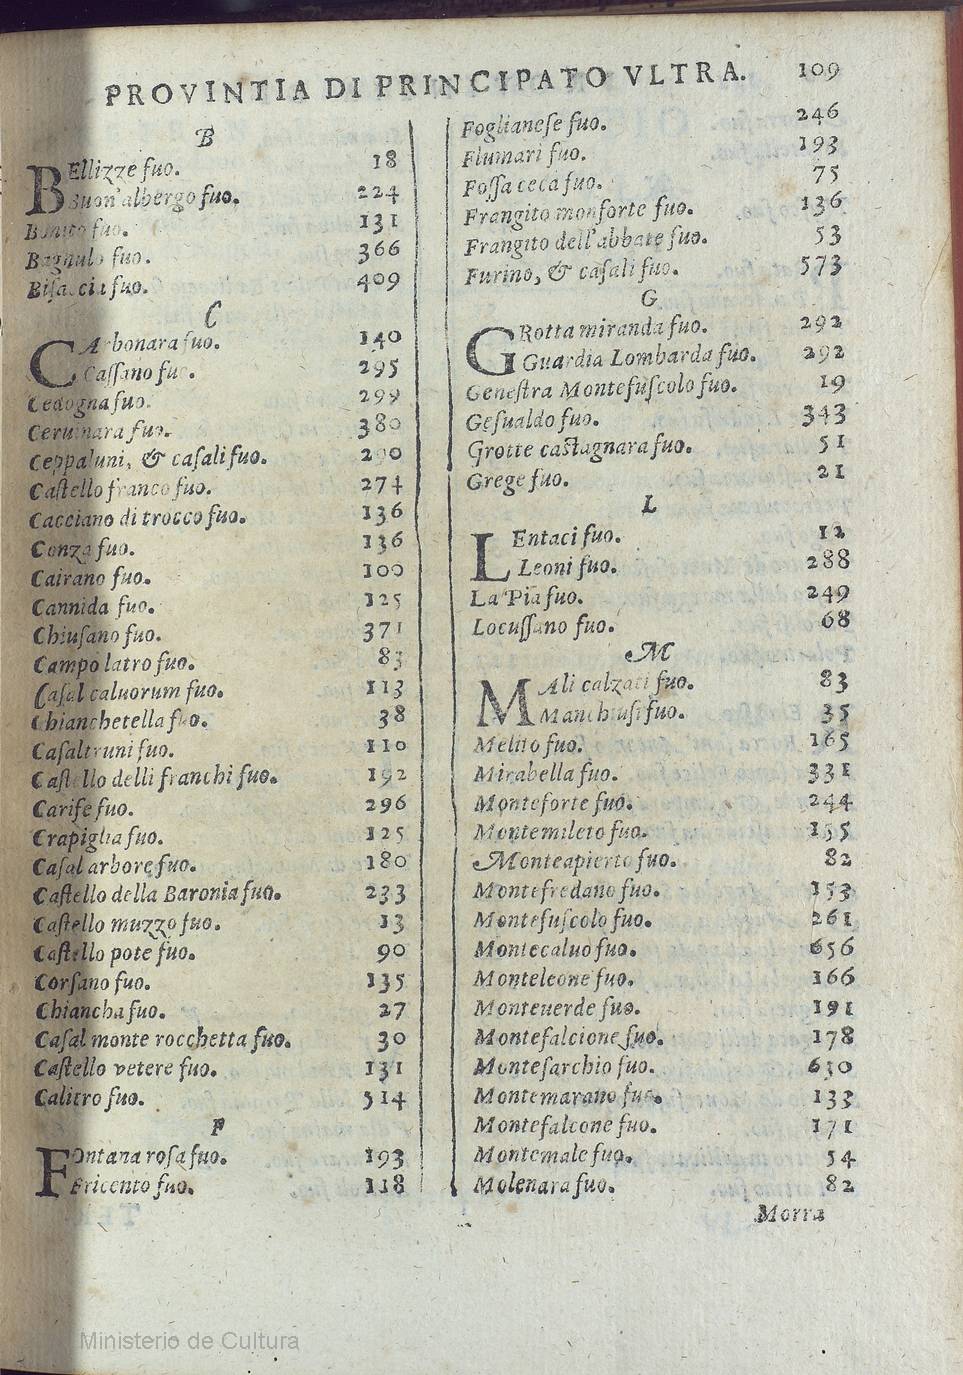 PROVINTIA DI PRINCIPATO VLTRA. 109
B
BEllizze fuo. 18
Buon'albergo fuo. 224
Bonito fuo. 131
Bagnulo fuo. 366
Bisaccia fuo. 409
C
CArbonara fuo. 140
Cassano fuo. 295
Cedogna fuo. 299
Ceruinara fuo. 380
Ceppaluni, & casali fuo. 290
Castello franco fuo. 274
Cacciano di trocco fuo. 136
Conza fuo. 136
Cairano fuo. 100
Cannida fuo. 125
Chiusano fuo. 371
Campo latro fuo. 83
Casal caluorum fuo. 113
Chianchetella fuo. 38
Casaltruni fuo. 110
Castello delli franchi fuo. 192
Carife fuo. 296
Crapiglia fuo. 125
Casal arbore fuo. 180
Castello della Baronia fuo. 233
Castello muzzo fuo. 13
Castello pote fuo. 90
Corsano fuo. 135
Chiancha fuo. 27
Casal monte rocchetta fuo. 30
Castello vetere fuo. 131
Calitro fuo. 514
F
FOntana rosa fuo. 193
Fricento fuo. 118
Foglianese fuo. 246
Flumari fuo. 193
Fossa ceca fuo. 75
Frangito monforte fuo. 136
Frangito dell'abbate fuo. 53
Furino, & casali fuo. 573
G
GRotta miranda fuo. 292
Guardia Lombarda fuo. 292
Genestra Montefuscolo fuo. 19
Gesualdo fuo. 343
Grotte castagnara fuo. 51
Grege fuo. 21
L
LEntaci fuo. 12
Leoni fuo. 288
La Pia fuo. 249
Locussano fuo. 68
M
MAli calzati fuo. 83
Manchiusi fuo. 35
Melito fuo. 165
Mirabella fuo. 331
Monteforte fuo. 244
Montemileto fuo. 155
Monteapierto fuo. 82
Montefredano fuo. 153
Montefuscolo fuo. 261
Montecaluo fuo. 656
Monteleone fuo. 166
Monteuerde fuo. 191
Montefalcione fuo. 178
Montesarchio fuo. 630
Montemarano fuo. 133
Montefalcone fuo. 171
Montemale fuo. 54
Molenara fuo. 82
Morra
Ministerio de Cultura